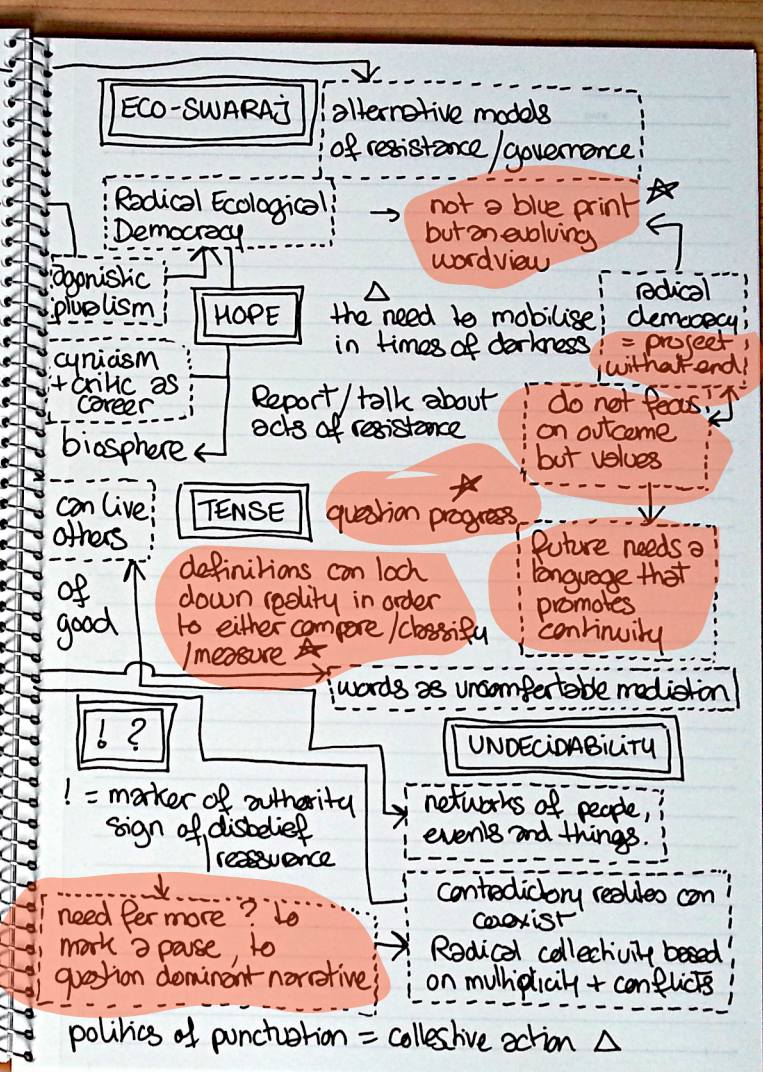 ECO-SWARAJ
alternative models
of resistance/governance
Radical Ecological
Democracy
→ not a blue print ☆
but an evolving
wordview
agonistic
pluralism
HOPE
△
the need to mobilise
in times of darkness
radical
democracy
= project
without end
cynicism
+ critic as
career
biosphere
Report/talk about
acts of resistance
do not focus
on outcome
but values
can live
others
TENSE
☆
question progress
future needs a
language that
promotes
continuity
of
good
definitions can lock
down reality in order
to either compare/classify
/measure ☆
words as uncomfertable mediation
! ?
UNDECIDABILITY
! = marker of authority
sign of disbelief
/reassurence
networks of people,
events and things.
need fer more ? to
mark a pause, to
question dominant narrative
contradictory realites can
coexist
Radical collectivity based
on multiplicity + conflicts
politics of punctuation = collective action △